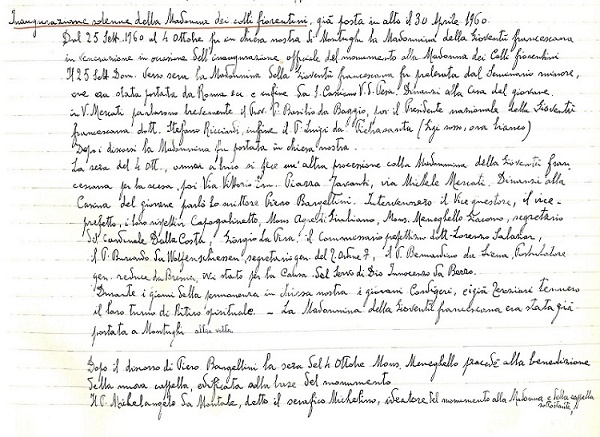 Inaugurazione solenne della Madonna dei colli fiorentini, già posta in alto il 30 Aprile 1960.
Dal 25 Sett. 1960 al 4 Ottobre fu in chiesa nostra di Montughi la Madonnina della Gioventù francescana
in venerazione in occasione dell'inaugurazione officiale del monumento alla Madonna dei Colli fiorentini
Il 25 Sett. Dom. verso sera la Madonnina della Gioventù francescana fu prelevata dal Seminario minore,
ove era stata portata da Roma e infine da S. Casciano V. S. Pesa. Dinanzi alla Casa del giovane
in V. Mercati parlarono brevemente il Prov. P. Basilio da Baggio, poi il Presidente nazionale della Gioventù
francescana dott. Stefano Ricciardi, infine il P. Luigi da Pietrasanta (Gigi rosso, ora bianco)
Dopo i discorsi la Madonnina fu portata in chiesa nostra.
La sera del 4 Ott., ormai a buio si fece un'altra processione colla Madonnina della Gioventù fran-
cescana per la scesa, poi Via Vittorio Em. Piazza Giovanti, via Michele Mercati. Dinanzi alla
Casina del giovane parlò lo scrittore Piero Bargellini. Intervennero il Vice questore, il vice-
prefetto, i loro rispettivi Capogabinetto, Mons Agresti Giuliano, Mons. Meneghello Giacomo, segretario
del Cardinale Dalla Costa, Giorgio La Pira, il Commissario prefettizio dott. Lorenzo Salazar,
il P. Burcardo da Wolfenschiessen, segretario gen. del 2 Ordine, il P. Bernardino da Siena, Postulatore
gen. reduce da Brescia, ove stato per la Causa del Servo di Dio Innocenzo da Berzo.
Durante i giorni della permanenza in chiesa nostra i giovani Cordigeri, e i già Terziari tennero
il loro turno di ritiro spirituale. – La Madonnina della Gioventù francescana era stata già
portata a Montughi
Dopo il discorso di Piero Bargellini la sera del 4 Ottobre Mons. Meneghello procedè alla benedizione
della nuova cappella, edificata alla base del monumento
Il P. Michelangelo da Montale, detto il serafico Michelino, ideatore del monumento alla Madonna e della cappella
sottostante,